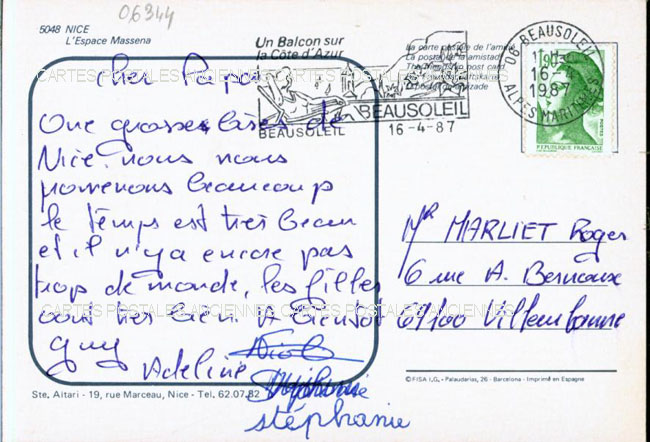 06344
5048 NICE
L'Espace Massena
Un Balcon sur
la Côte d'Azur
BEAUSOLEIL
BEAUSOLEIL
16-4-87
La carte postale de l'amitié
06 BEAUSOLEIL
16-4
1987
ALPES MARITIMES
REPUBLIQUE FRANÇAISE
CARTES POSTALES ANCIENNES CARTES POSTALES ANCIENNES
Cher Papa
Une grosses bises de
Nice. nous nous
promenons beaucoup
le temps est très beau
et il n'y a encore pas
trop de monde, les filles
vont très bien. A bientôt
Guy
Adeline
Nicole
Stéphanie
stéphanie
Mr MARLIET Roger
6 rue A. Bernoux
69100 Villeurbanne
CARTES POSTALES ANCIENNES CARTES POSTALES ANCIENNES
Ste. Aitari - 19, rue Marceau, Nice - Tel. 62.07.82
©FISA I,G,. Palaudarias, 26 - Barcelona - Imprimé en Espagne